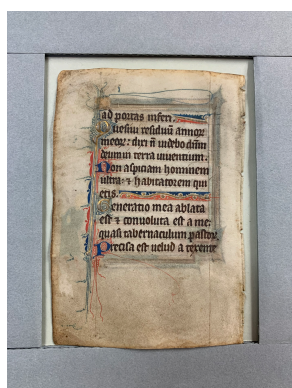 ad portas inferi.
Quesiui residuū annoꝝ
meoꝝ: dixi ñ uidebo dñm
deum in terra uiuentium.
Non aspiciam hominem
ultra: ⁊ habitatorem qui
etis.
Generatio mea ablata
est ⁊ conuoluta est a me:
quasi tabernaculum pastoꝝ.
Precisa est uelud a texente